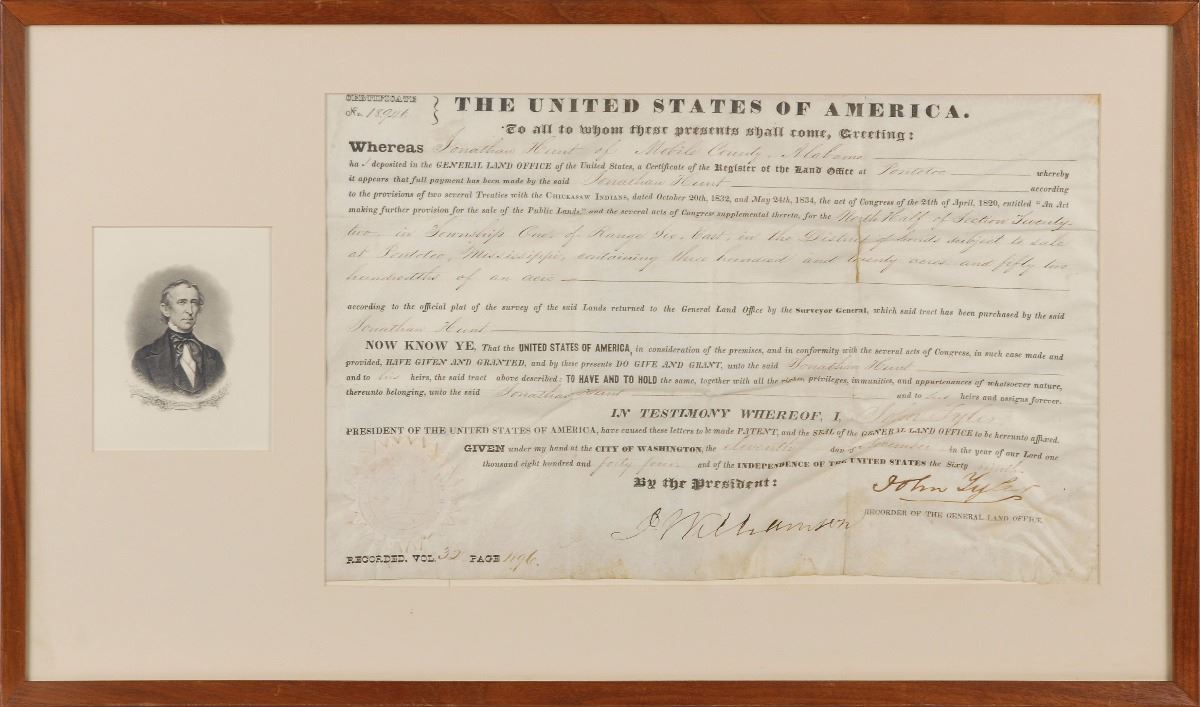 CERTIFICATE
No. 18946
THE UNITED STATES OF AMERICA.
To all to whom these presents shall come, Greeting:
Whereas Jonathan Hunt of Mobile County, Alabama
ha s deposited in the GENERAL LAND OFFICE of the United States, a Certificate of the Register of the Land Office at Pontotoc whereby
it appears that full payment has been made by the said Jonathan Hunt according
to the provisions of two several Treaties with the CHICKASAW INDIANS, dated October 20th, 1832, and May 24th, 1834, the act of Congress of the 24th of April, 1820, entitled "An Act
making further provision for the sale of the Public Lands," and the several acts of Congress supplemental thereto, for the North Half of Section Twenty
two, in Township One, of Range Six, East, in the District of lands subject to sale
at Pontotoc, Mississippi, containing three hundred and twenty acres and fifty two
hundredths of an acre
according to the official plat of the survey of the said Lands returned to the General Land Office by the Surveyor General, which said tract has been purchased by the said
Jonathan Hunt
NOW KNOW YE, That the UNITED STATES OF AMERICA, in consideration of the premises, and in conformity with the several acts of Congress, in such case made and
provided, HAVE GIVEN AND GRANTED, and by these presents DO GIVE AND GRANT, unto the said Jonathan Hunt
and to his heirs, the said tract above described: TO HAVE AND TO HOLD the same, together with all the rights, privileges, immunities, and appurtenances of whatsoever nature,
thereunto belonging, unto the said Jonathan Hunt and to his heirs and assigns forever.
IN TESTIMONY WHEREOF, I, John Tyler
PRESIDENT OF THE UNITED STATES OF AMERICA, have caused these letters to be made PATENT, and the SEAL of the GENERAL LAND OFFICE to be hereunto affixed.
GIVEN under my hand at the CITY OF WASHINGTON, the eleventh day of in the year of our Lord one
thousand eight hundred and forty four and of the INDEPENDENCE OF THE UNITED STATES the Sixty ninth
By the President: John Tyler
J Williamson
RECORDER OF THE GENERAL LAND OFFICE.
RECORDED, VOL. PAGE